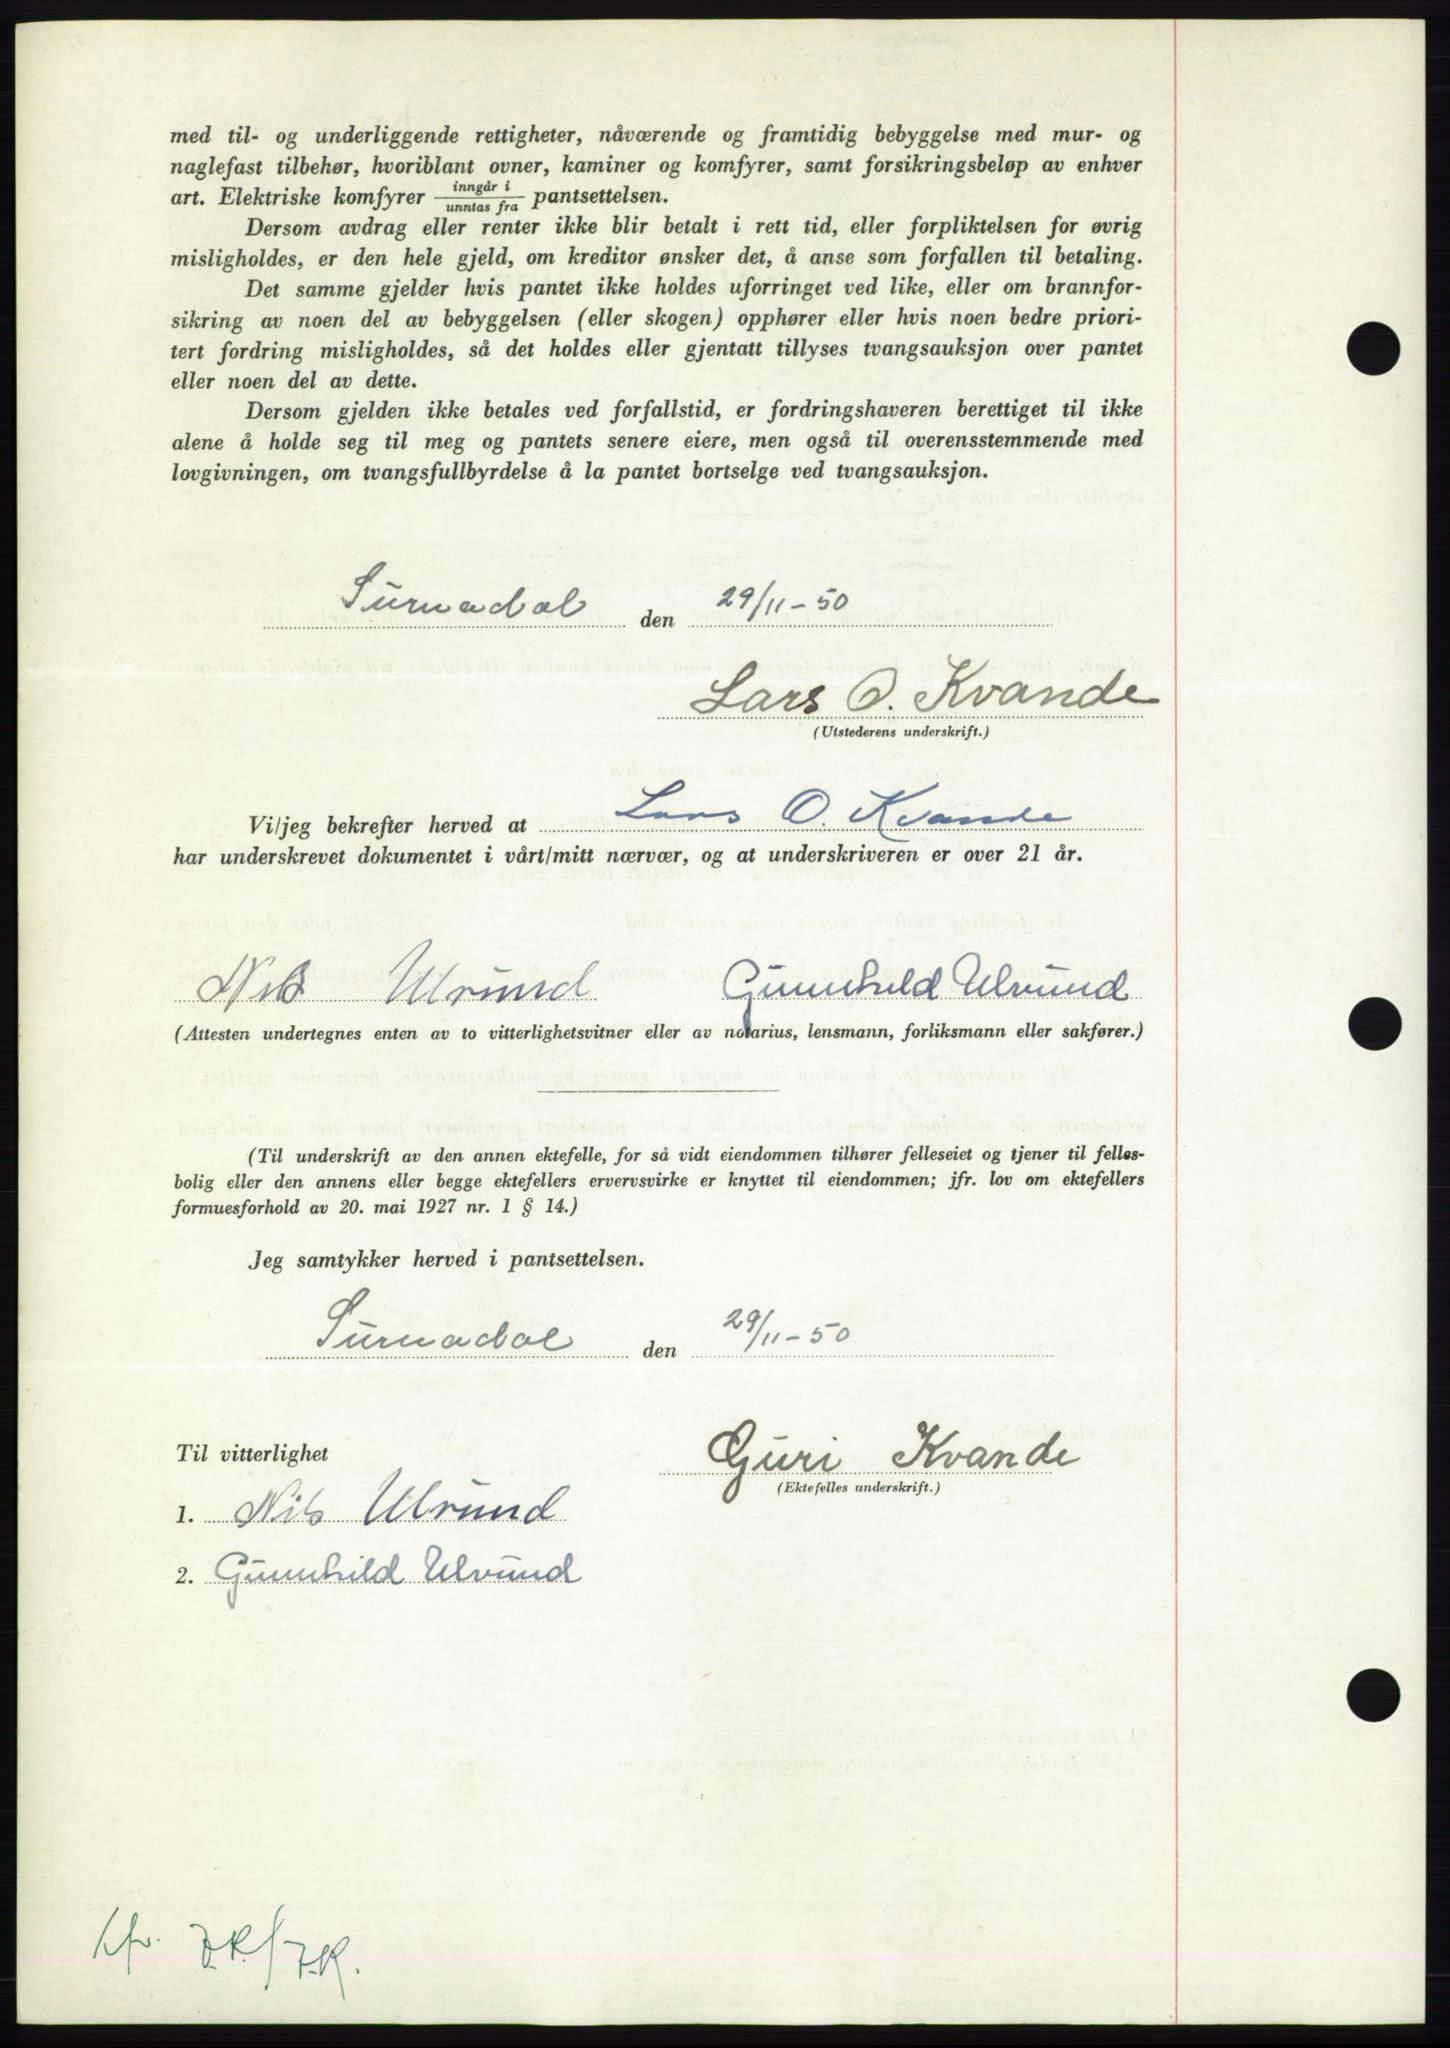 med til- og underliggende rettigheter, nåværende og framtidig bebyggelse med mur- og
naglefast tilbehør, hvoriblant ovner, kaminer og komfyrer, samt forsikringsbeløp av enhver
art. Elektriske komfyrer inngår i / unntas fra pantsettelsen.
Dersom avdrag eller renter ikke blir betalt i rett tid, eller forpliktelsen for øvrig
misligholdes, er den hele gjeld, om kreditor ønsker det, å anse som forfallen til betaling.
Det samme gjelder hvis pantet ikke holdes uforringet ved like, eller om brannfor-
sikring av noen del av bebyggelsen (eller skogen) opphører eller hvis noen bedre priori-
tert fordring misligholdes, så det holdes eller gjentatt tillyses tvangsauksjon over pantet
eller noen del av dette.
Dersom gjelden ikke betales ved forfallstid, er fordringshaveren berettiget til ikke
alene å holde seg til meg og pantets senere eiere, men også til overensstemmende med
lovgivningen, om tvangsfullbyrdelse å la pantet bortselge ved tvangsauksjon.
Surnadal den 29/11-50
Lars O. Kvande
(Utstederens underskrift.)
Vi/jeg bekrefter herved at Lars O. Kvande
har underskrevet dokumentet i vårt/mitt nærvær, og at underskriveren er over 21 år.
Nils Ulvund Gunnhild Ulvund
(Attesten undertegnes enten av to vitterlighetsvitner eller av notarius, lensmann, forliksmann eller sakfører.)
(Til underskrift av den annen ektefelle, for så vidt eiendommen tilhører felleseiet og tjener til felles-
bolig eller den annens eller begge ektefellers ervervsvirke er knyttet til eiendommen; jfr. lov om ektefellers
formuesforhold av 20. mai 1927 nr. 1 § 14.)
Jeg samtykker herved i pantsettelsen.
Surnadal den 29/11-50
Til vitterlighet
Guri Kvande
(Ektefelles underskrift.)
1. Nils Ulvund
2. Gunnhild Ulvund